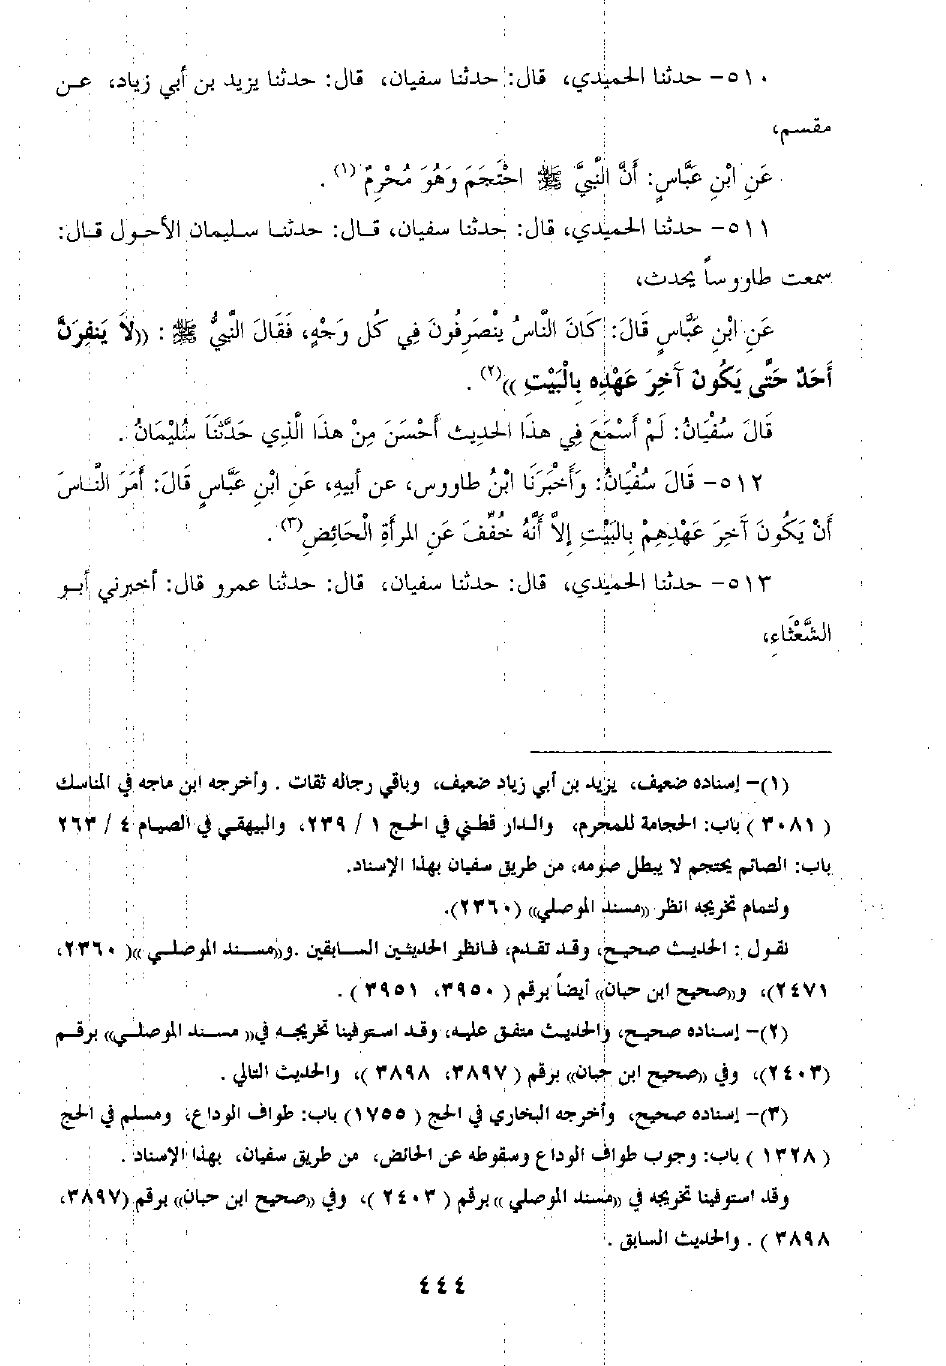 ٥١٠- حدثنا الحميدي، قال: حدثنا سفيان، قال: حدثنا يزيد بن أبي زياد، عـن
مقسم،
عَنِ ابْنِ عَبَّاسٍ: أَنَّ النَّبِيَّ ﷺ احْتَجَمَ وَهُوَ مُحْرِمٌ (١) .
٥١١- حدثنا الحميدي، قال: حدثنا سفيان، قـال: حدثنـا سـليمان الأحـول قـال:
سمعت طاووساً يحدث،
عَنِ ابْنِ عَبَّاسٍ قَالَ: كَانَ النَّاسُ يَنْصَرِفُونَ فِي كُلِ وَجْهٍ، فَقَالَ النَّبِيُّ ﷺ : ((لَا يَنفِرَنَّ
أَحَدٌ حَتَّى يَكُونَ آخِرَ عَهْدِهِ بِالْبَيْتِ ))(٢) .
قَالَ سُفْيَانُ: لَمْ أَسْمَعَ فِي هذَا الحَدِيثِ أَحْسَنَ مِنْ هذَا الَّذِي حَدَّثَنَا سُلَيْمَانُ .
٥١٢- قَالَ سُفْيَانُ: وَأَخْبَرَنَا ابْنُ طاووس، عن أبيهِ، عَنِ ابْنِ عَبَّاسٍ قَالَ: أَمَرَ النَّـاسَ
أَنْ يَكُونَ آخِرَ عَهْدِهِمْ بِالبَيْتِ إِلاَّ أَنَّهُ خُفِّفَ عَنِ المرأَةِ الْحَائِضِ(٣) .
٥١٣- حدثنا الحميدي، قال: حدثنا سفيان، قال: حدثنا عمرو قال: أخبرني أبـو
الشَّعْثَاءِ،
(١)- إسناده ضعيف، يزيد بن أبي زياد ضعيف، وباقي رجاله ثقات . وأخرجه ابن ماجه في المناسك
( ٣٠٨١ ) باب: الحجامة للمحرم، والـدار قطـني في الحـج ١ / ٢٣٩، والبيهقـي في الصيـام ٤ / ٢٦٣
باب: الصائم يحتجم لا يبطل صومه، من طريق سفيان بهذا الإسناد.
ولتمام تخريجه انظر ((مسند الموصلي)) (٢٣٦٠).
نقـول : الحديث صحيـح، وقـد تقـدم، فـانظر الحديثـين السـابقين .و((مسـند الموصلـي ))( ٢٣٦٠،
٢٤٧١)، و((صحيح ابن حبان)) أيضاً برقم ( ٣٩٥٠، ٣٩٥١ ) .
(٢)- إسـناده صحيـح، والحديث متفق عليـه، وقـد اسـتوفينا تخريجـه في(( مسـند الموصلـي)) برقـم
(٢٤٠٣)، وفي ((صحيح ابن حبان)) برقم ( ٣٨٩٧، ٣٨٩٨ )، والحديث التالي .
(٣)- إسناده صحيح، وأخرجه البخاري في الحج ( ١٧٥٥) باب: طواف الوداع، ومسلم في الحج
( ١٣٢٨ ) باب: وجوب طواف الوداع وسقوطه عن الحائض، من طريق سفيان، بهذا الإسناد .
وقد استوفينا تخريجه في ((مسند الموصلي )) برقم ( ٢٤٠٣ )، وفي ((صحيح ابن حبان)) برقم (٣٨٩٧،
٣٨٩٨ ) . والحديث السابق .
٤٤٤